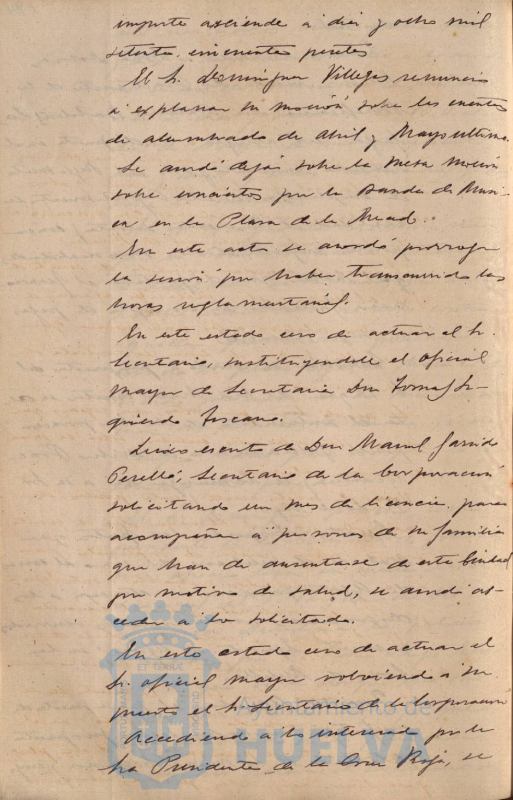 importe asciende a diez y ocho mil
setenta, cincuenta pesetas
El Sr. Dominguez Villegas renuncia
a explanar su moción sobre las cuentas
de alumbrado de Abril y Mayo ultimo.
Se acordó dejar sobre la mesa moción
sobre conciertos por la Banda de Musi-
ca en la Plaza de la Merced.
En este acto se acordó prorrogar
la sesión por haber transcurrido las
horas reglamentarias.
En este estado cesó de actuar el Sr.
Secretario, sustituyendole el oficial
mayor de Secretaria Don Tomas Iz-
quierdo Toscano.
Leido escrito de Don Manuel Garrido
Perelló, Secretario de la Corporación
solicitando un mes de licencia para
acompañar a personas de su familia
que han de ausentarse de esta Ciudad
por motivo de salud, se acordó ac-
ceder a lo solicitado.
En este estado cesó de actuar el
Sr. oficial mayor volviendo a su
puesto el Sr. Secretario de la Corporación
Accediendo a lo interesado por la
Sra Presidenta de la Cruz Roja, se
Ayuntamiento de
HUELVA